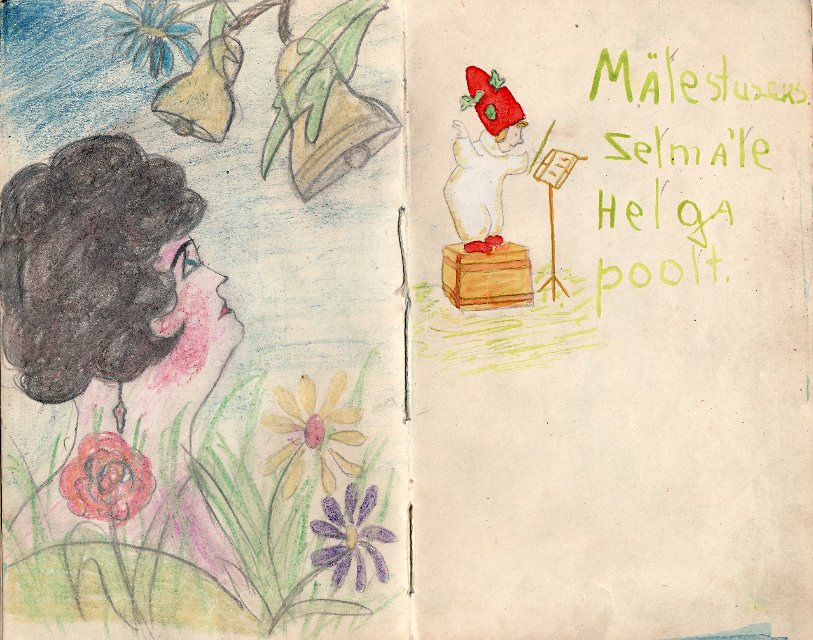 Mälestuseks.
Selmäle
Helga
poolt.